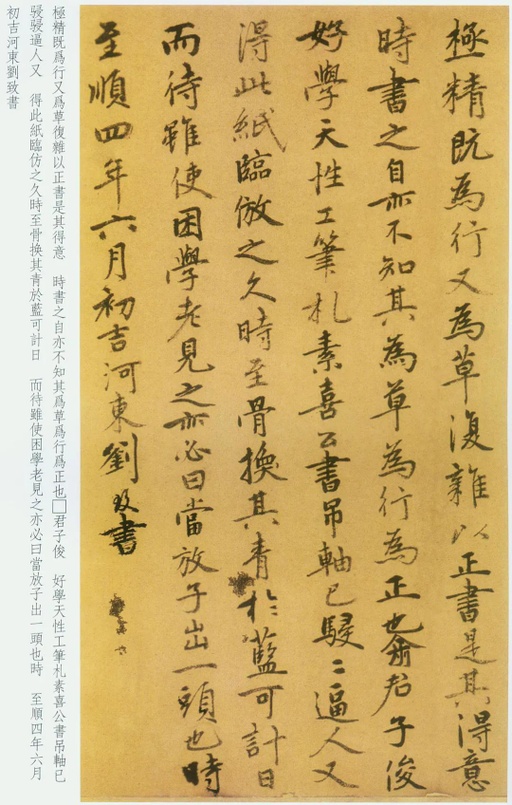 極精既為行又為草復雜以正書是其得意
時書之自亦不知其為草為行為正也俞君子俊
好學天性工筆札素喜公書吊軸已駸〻逼人又
得此紙臨倣之久時至骨換其青於藍可計日
而待雖使困學老見之亦必曰當放子出一頭也時
至順四年六月初吉河東劉致書
極精既爲行又爲草復雜以正書是其得意 時書之自亦不知其爲草爲行爲正也□君子俊 好學天性工筆札素喜公書吊軸已
駸駸逼人又 得此紙臨仿之久時至骨換其青於藍可計日 而待雖使困學老見之亦必曰當放子出一頭也時 至順四年六月
初吉河東劉致書